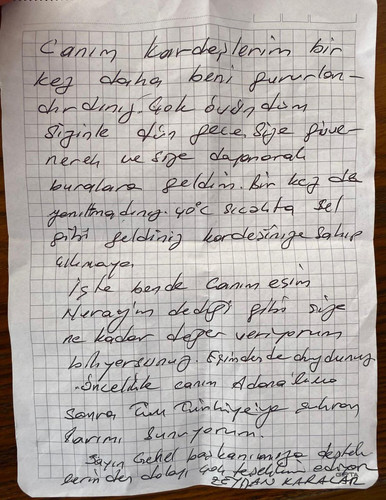 Canım kardeşlerim bir
kez daha beni gururlan-
dırdınız. Çok övündüm
sizinle dün gece. Size güve-
nerek ve size dayanarak
buralara geldim. Bir kez de
yanıltmadınız. 40°C sıcakta sel
gibi geldiniz kardeşinize sahip
çıkmaya.
İşte bende canım eşim
Nuray'ım dediği gibi size
ne kadar değer veriyorum
biliyorsunuz. Eşimden de duydunuz.
Öncelikle canım Adana'lıma
sonra Tüm Türkiye'ye şükran
larımı sunuyorum.
Sayın Genel başkanımıza destek
lerinden dolayı çok teşekkür ediyorum
ZEYDAN KARALAR